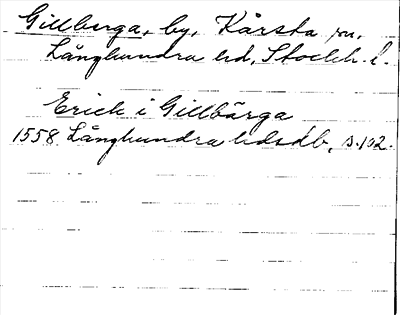 Gillberga, by, Kårsta sn,
Långhundra hd, Stockh. l.
Erich i Gillbärga
1558 Långhundra hdsdb, s. 102.